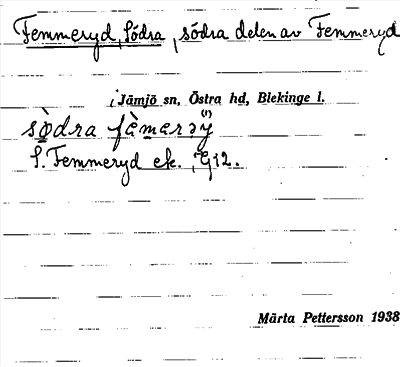 Femmeryd, Södra, södra delen av Femmeryd
i Jämjö sn, Östra hd, Blekinge l.
sò̱dra fæ̀mərəy(!)
S. Femmeryd ek. G12.
Märta Pettersson 1938